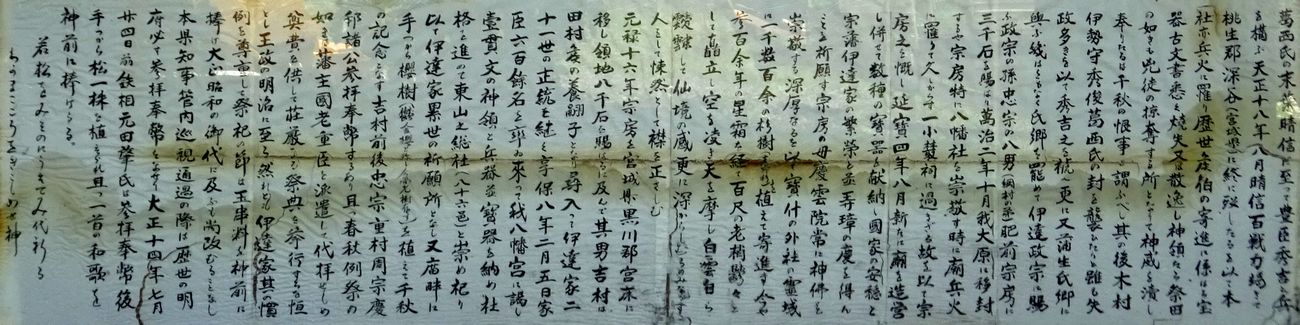 葛西氏の末晴信に至つて豊臣秀吉と兵
を構ふ天正十八年八月晴信百戦力竭きて
桃生郡深谷(宮城県)に終に歿したるを以て本
社亦兵火に罹り歴世侯伯の寄進に係はる宝
器古文書悉く焼失又は散逸し神領たる祭田
の如きも兇徒の掠奪する所となりて神威を潰し
奉りたるは千秋の恨事と謂ふべし其の後木村
伊勢守秀俊葛西氏の封を襲ひたりと雖も失
政多きを以て秀吉之を褫ひ更に又蒲生氏郷に
与ふ幾はくもなく氏郷を罷めて伊達政宗に賜
ふ政宗の孫忠宗の八男肥前宗房に
三千石を賜はり萬治二年十月我大原に移封
するや宗房特に八幡社を宗敬す時に廟兵火
に罹りて人から一小藪祠に過ぎざる故を以て宗
房之を慨し延宝四年八月新たに廟を造営
し併せて数種の宝器を献納し国家の安穏と
宗藩伊達家の繁栄を並弄璋の慶を得ん
ことを祈願す宗房の母慶雲院常に神佛を
崇敬する深厚なるを以て宝什の外社の霊域
に一千数百余の杉樹を植えて寄進す今や
二百余年の星霜を経て百尺の老梢鬱々と
して矗立し空を凌ぎ天を摩し白雲自ら
靉靆として仙境の感更に深からしむ
人をして悚然として襟を正さしむ
元禄十六年宗房を宮城県黒川郡宮床に
移し領地八千石を賜はるに及んで其男吉村は
田村侯の養嗣子となり尋入つて伊達家二
十一世の正統を継ぐ享保八年二月五日家
臣六百餘名を率ゐ来つて我八幡宮に謁し
壹貫文の神領と兵器並宝器を納め社
格を進めて東山の総社(八十六邑)と崇め祀り
以て伊達家累世の祈願所となす又庿畔に
手つから桜樹を植えて千秋
の記念となす吉村前後忠宗重村周宗慶
邦諸公参拝奉幣するあり且つ春秋例祭の
如き藩主国老重臣を派遣して代拝せしめ
奠費を供して荘厳なる祭典を挙行するを恒
とし王政の明治に至る然れとも伊達家其の慣
例を尊重して祭祀の節は玉串料を神前に
捧げ大正昭和の御代に及ふも尚改むることなし
本県知事管内巡視通過の際は歴世の明
府必す参拝奉幣をなす大正十四年七月
廿四日前鉄相元田肇氏は参拝奉幣後
手つから松一株を植ゑられ且つ一首の和歌を
神前に捧けらる